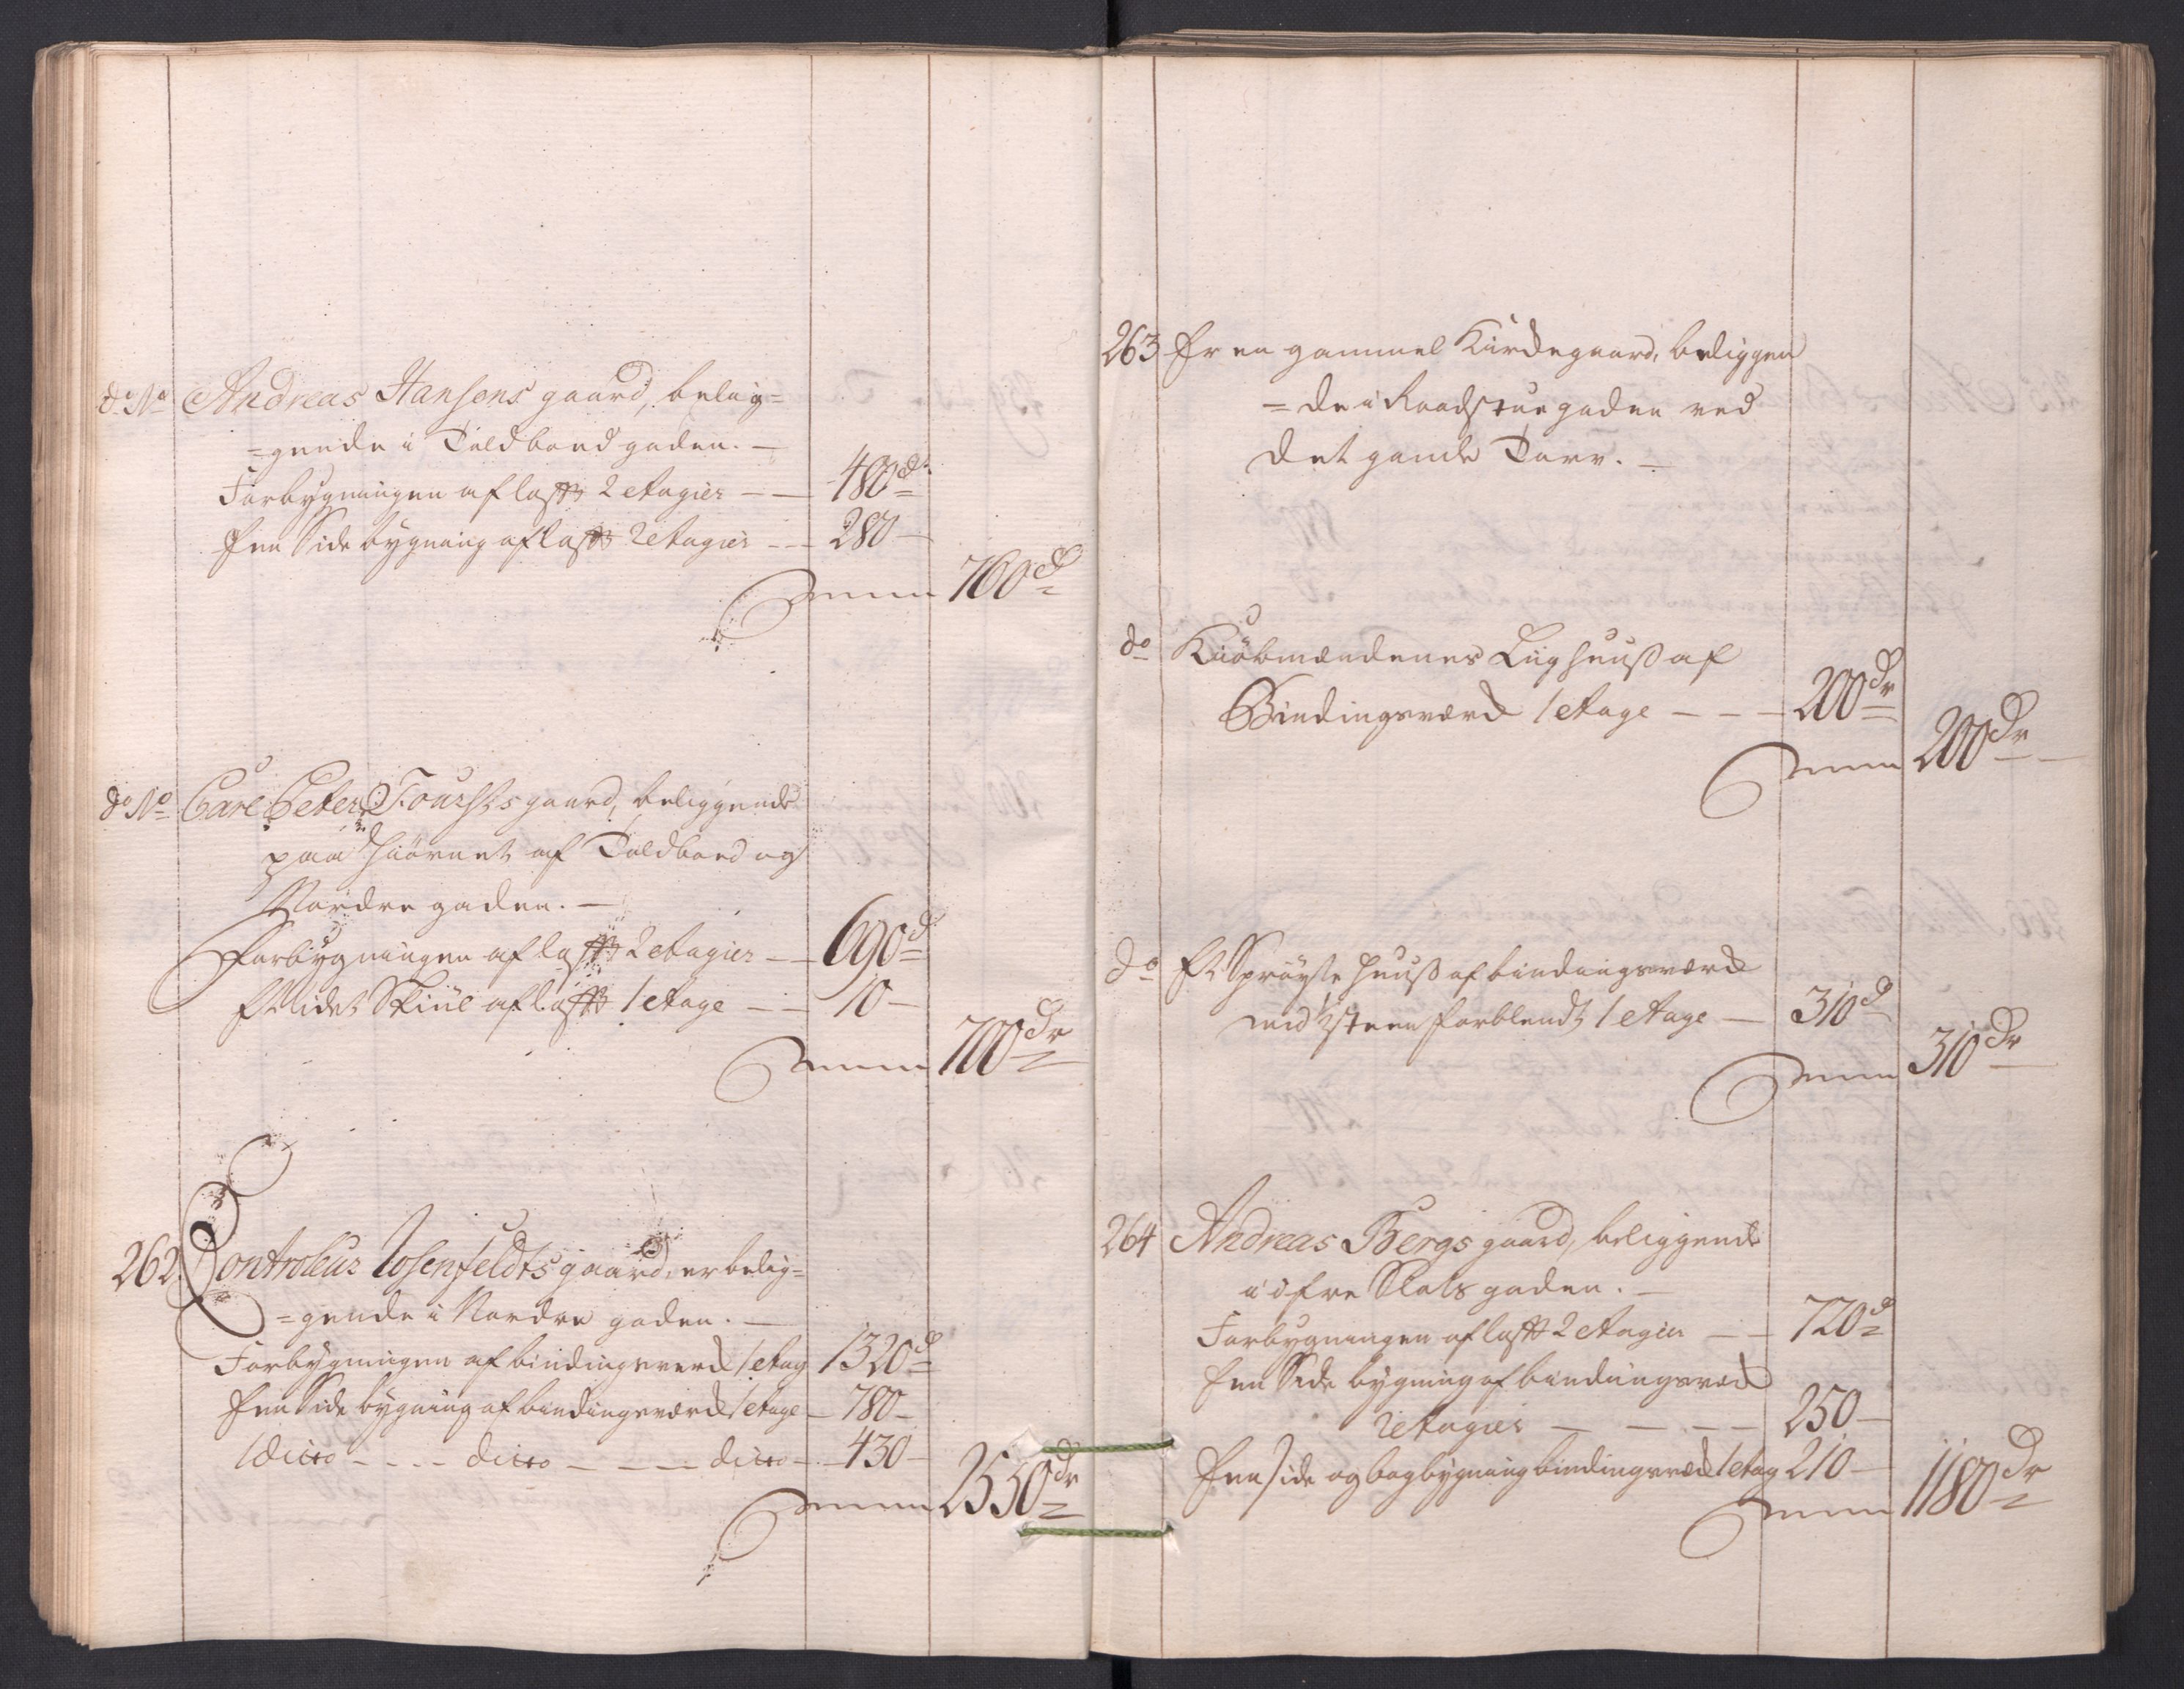 do No Andreas Hansens gaard, belig=
=gende i Toldbod gaden. —
Forbygningen af laft 2 etagier — — 480 dr
Een Side bygning af laft 2 etagier — — 280 —
Summa 760 dr
do No Carl Peter gaard, beliggende
paa Hiørnet af Toldbod og
Nordre gaden. —
Forbygningen af laft 2 etagier — — 690 d
Et lidet Skiul af laft 1 etage — — 10 —
Summa 700 dr
262. Controlleur Rosenfeldts gaard, er belig=
=gende i Nordre gaden. —
Forbygningen af bindingsverk 1 etag 1320 d
Een Side bygning af bindingsverk 1 etage — 780 —
1 ditto — — — ditto — — — ditto — — 430 —
Summa 2530 dr
263 Er en gammel Kirkegaard, beliggen
=de i Raadstue gaden ved
det gamle Torv. —
do Kiøbmændenes Liighuuß af
Bindingsverk 1 etage — — — 200 dr
Summa 200 dr
do Et Sprøyte Huuß af bindingsverk
med 1/2 steen forblendt 1 etage — 310 d
Summa 310 dr
264 Andreas Bergs gaard, beliggende
i øfre Slots gaden. —
Forbygningen af laft 2 etagier — — 720 d
Een Side bygning af bindingsverk
2 etagier — — — — 250 —
Een side og bagbygning bindingsverk 1 etag 210 —
Summa 1180 dr